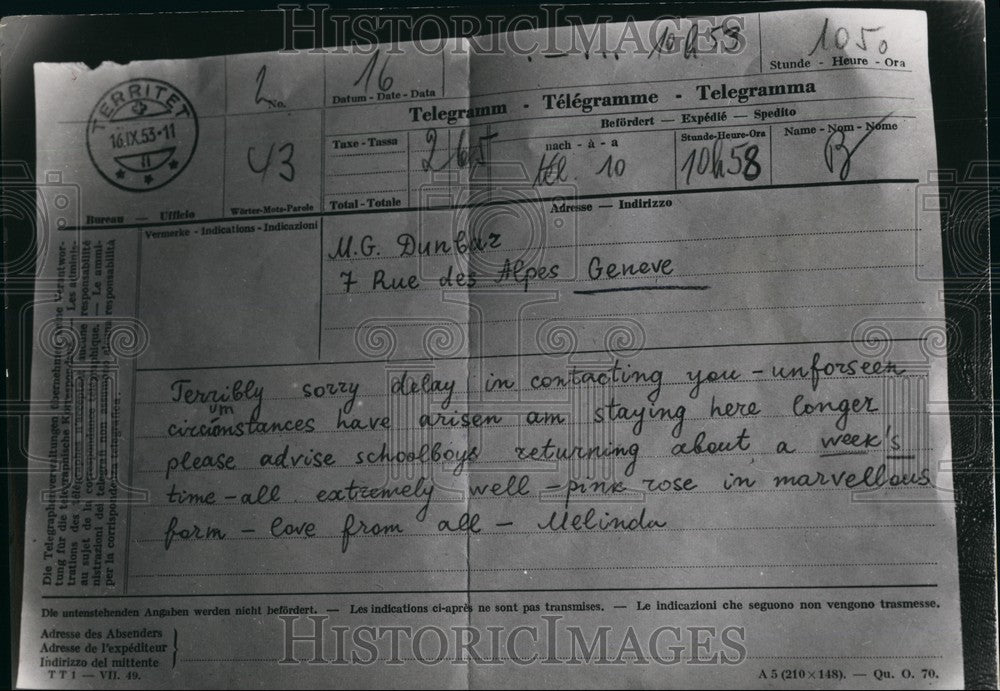 TERRITET
16.IX.53-11
2
No.
16
Datum - Date - Data
10h53
1050
Stunde - Heure - Ora
Telegramm - Télégramme - Telegramma
43
Taxe - Tassa
Befördert — Expédié — Spedito
nach - à - a
tél. 10
Stunde-Heure-Ora
10h58
Name - Nom - Nome
Bureau — Ufficio
Wörter-Mots-Parole
Total - Totale
Adresse — Indirizzo
Vermerke - Indications - Indicazioni
M.G. Dunbar
7 Rue des Alpes Geneve
Terribly sorry delay in contacting you - unforseen
circumstances have arisen am staying here longer
please advise schoolboys returning about a week's
time - all extremely well - pink rose in marvellous
form - love from all - Melinda
Die Telegraphenverwaltungen übernehmen keine Verantwor-
tung für die telegraphische Korrespondenz. — Les adminis-
trations des télégraphes n'acceptent aucune responsabilité
au sujet de la correspondance télégraphique. — Le ammi-
nistrazioni dei telegrafi non assumono alcuna responsabilità
per la corrispondenza telegrafica.
Die untenstehenden Angaben werden nicht befördert. — Les indications ci-après ne sont pas transmises. — Le indicazioni che seguono non vengono trasmesse.
Adresse des Absenders
Adresse de l'expéditeur
Indirizzo del mittente
TT1 — VII. 49.
A 5 (210×148). — Qu. O. 70.
HISTORIC IMAGES
HISTORIC IMAGES